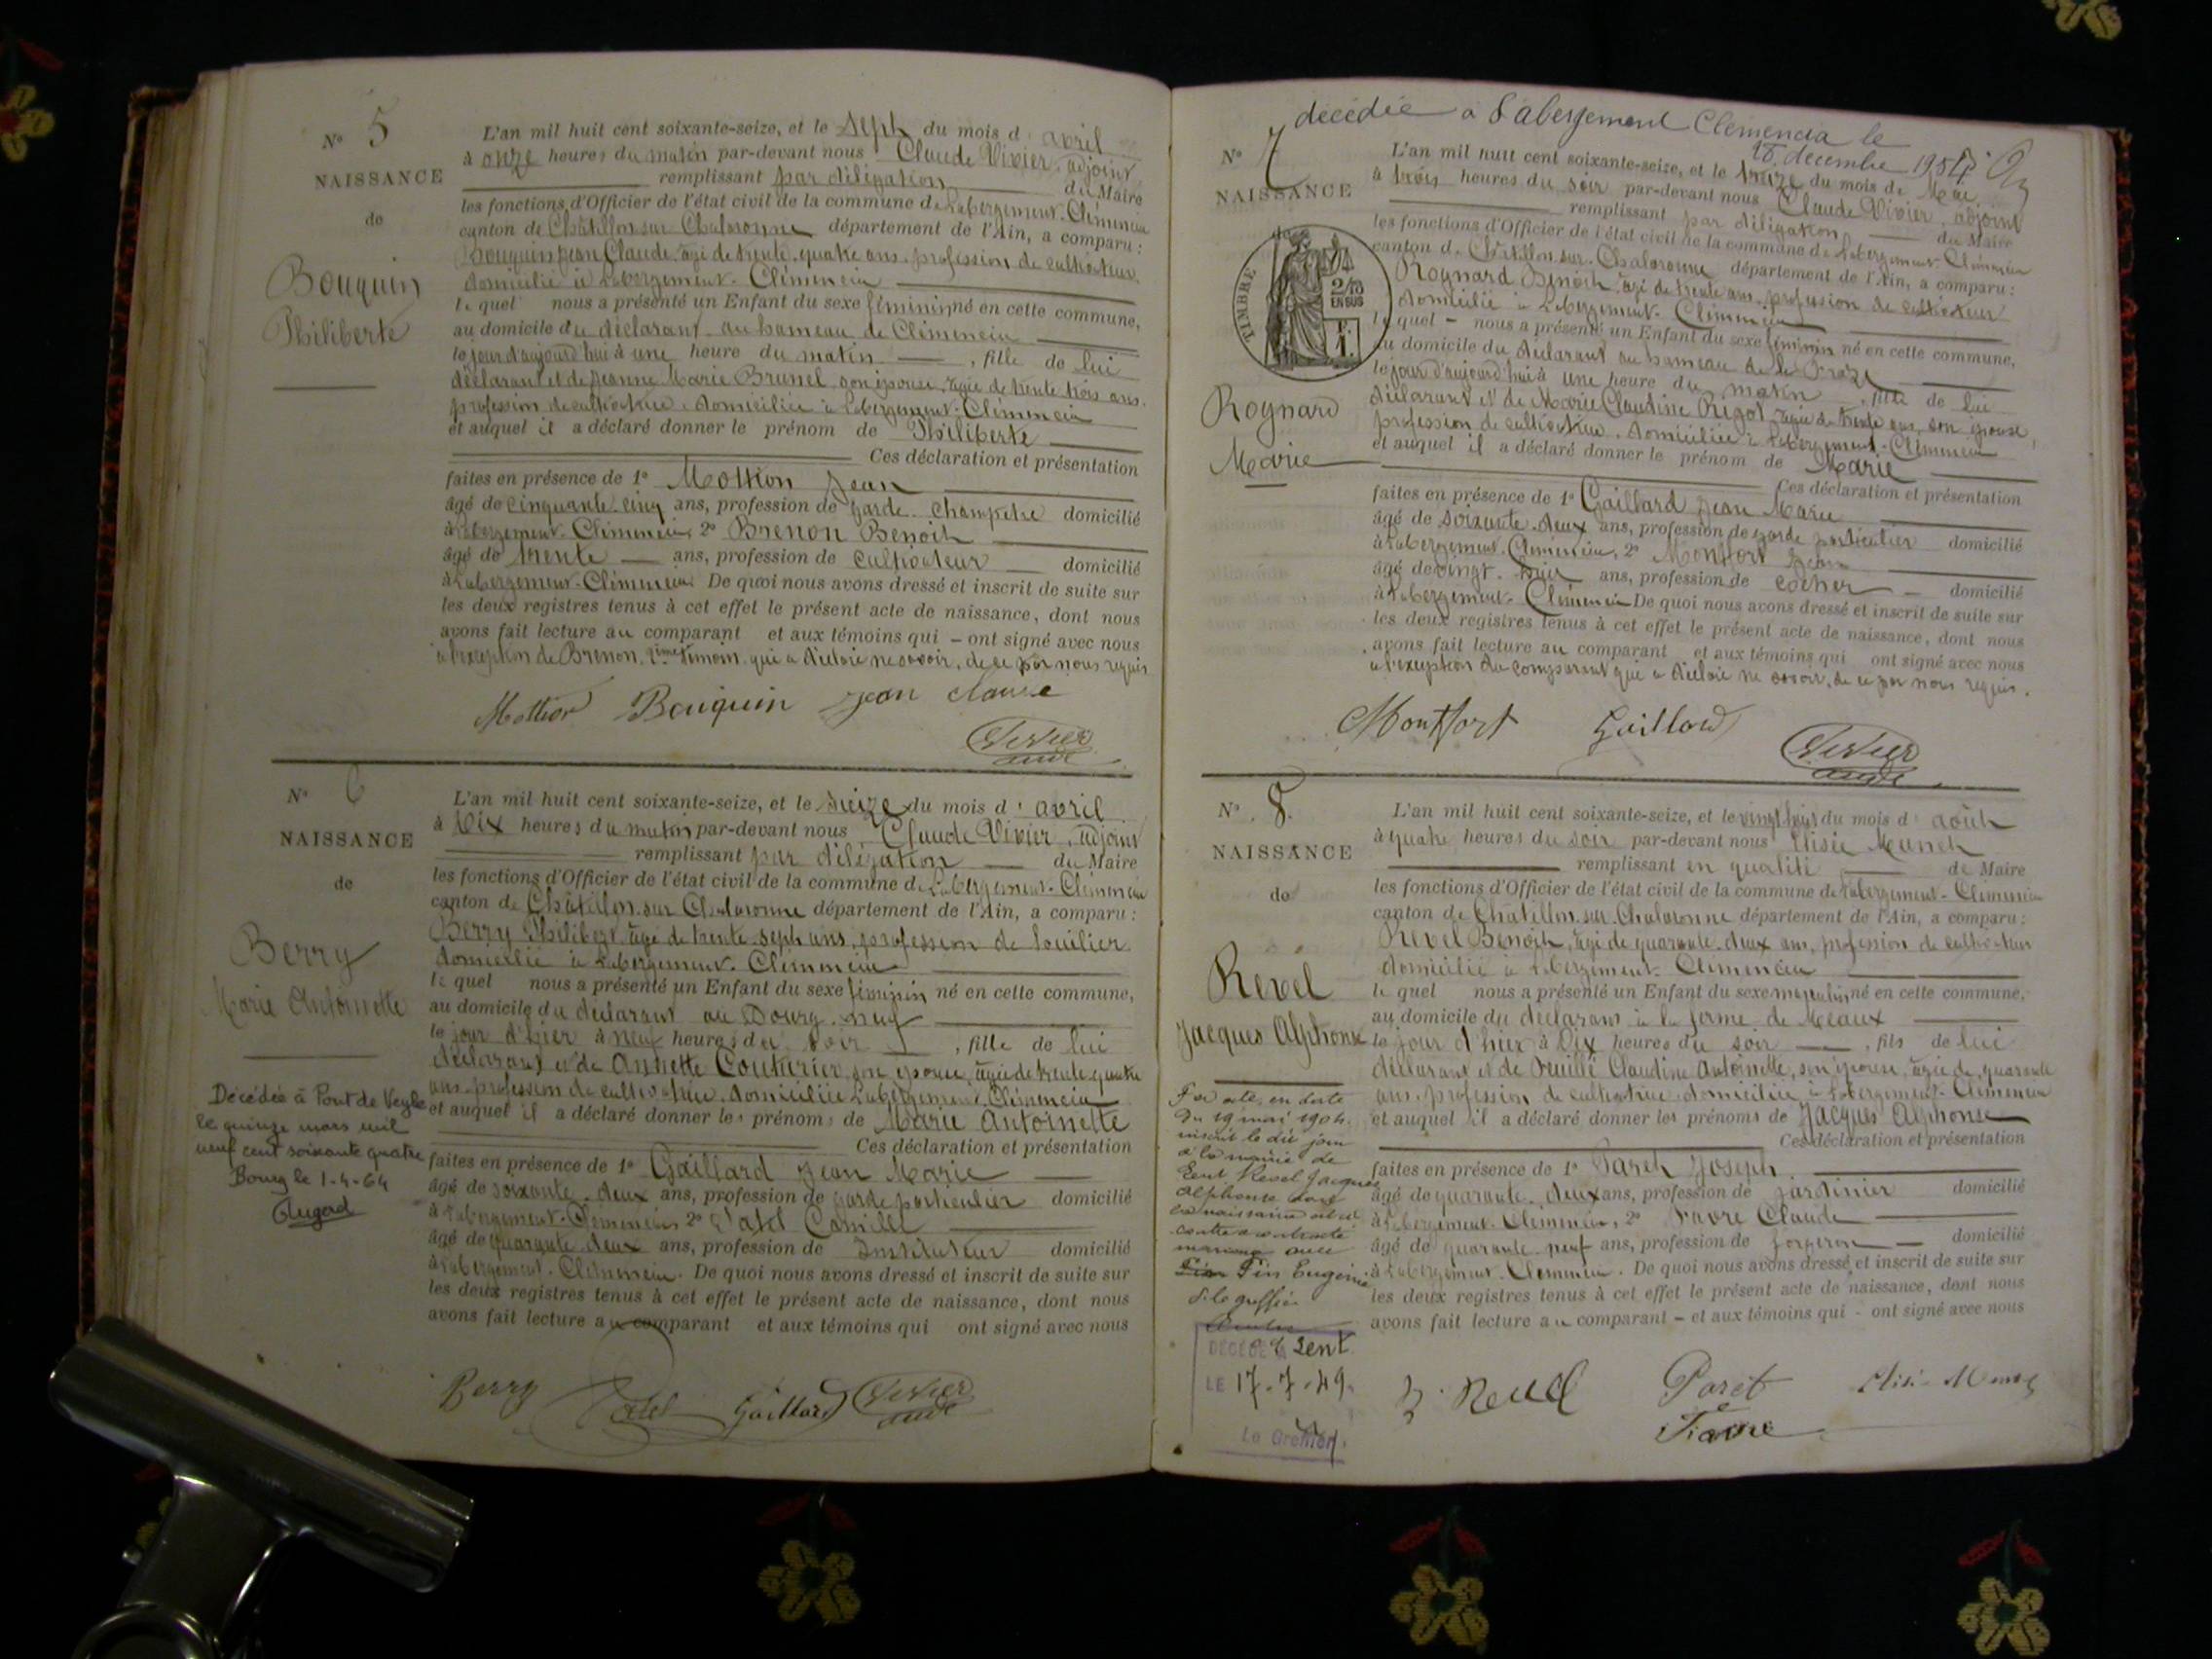 N° 5
NAISSANCE
de
Bouquin
Philiberte
L'an mil huit cent soixante-seize, et le sept du mois d'avril
à onze heures du matin par-devant nous Claude Vivier, adjoint
remplissant par délégation du Maire
les fonctions d'Officier de l'état civil de la commune de Labergement-Clémencia
canton de Châtillon sur Chalaronne département de l'Ain, a comparu :
Bouquin Jean Claude, âgé de trente quatre ans, profession de cultivateur
domicilié à Labergement-Clémencia
lequel nous a présenté un Enfant du sexe féminin né en cette commune,
au domicile du déclarant au hameau de Clémencia
le jour d'aujourd'hui à une heure du matin, fille de lui
déclarant et de Jeanne Marie Brunel son épouse, âgée de trente trois ans,
profession de cultivatrice, domiciliée à Labergement-Clémencia
et auquel il a déclaré donner le prénom de Philiberte
Ces déclaration et présentation
faites en présence de 1° Mothion Jean
âgé de cinquante cinq ans, profession de garde champêtre domicilié
à Labergement-Clémencia 2° Brenon Benoit
âgé de trente ans, profession de cultivateur domicilié
à Labergement-Clémencia. De quoi nous avons dressé et inscrit de suite sur
les deux registres tenus à cet effet le présent acte de naissance, dont nous
avons fait lecture au comparant et aux témoins qui – ont signé avec nous
à l'exception de Brenon, 2ème témoin, qui a déclaré ne savoir, de ce par nous requis
Bouquin Jean Claude
Vivier
N° 6
NAISSANCE
de
Berry
Marie Antoinette
Décédée à Pont de Veyle
le quinze mars mil
neuf cent soixante quatre
Bourg le 1-4-64
L'an mil huit cent soixante-seize, et le seize du mois d'avril
à dix heures du matin par-devant nous Claude Vivier, adjoint
remplissant par délégation du Maire
les fonctions d'Officier de l'état civil de la commune de Labergement-Clémencia
canton de Châtillon sur Chalaronne département de l'Ain, a comparu :
Berry Philibert, âgé de trente sept ans, profession de
domicilié à Labergement-Clémencia
lequel nous a présenté un Enfant du sexe féminin né en cette commune,
au domicile du déclarant au Bourg-neuf
le jour d'hier à neuf heures du soir, fille de lui
déclarant et de Annette Couturier, son épouse, âgée de trente quatre
ans, profession de cultivatrice, domiciliée Labergement-Clémencia
et auquel il a déclaré donner les prénoms de Marie Antoinette
Ces déclaration et présentation
faites en présence de 1° Gaillard Jean Marie
âgé de soixante-deux ans, profession de garde particulier domicilié
à Labergement-Clémencia 2° Camille
âgé de quarante-deux ans, profession de Instituteur domicilié
à Labergement-Clémencia. De quoi nous avons dressé et inscrit de suite sur
les deux registres tenus à cet effet le présent acte de naissance, dont nous
avons fait lecture au comparant et aux témoins qui ont signé avec nous
Berry Gaillard Vivier
décédée à L'abergement Clemencia le
18 decembre 195
N° 7
NAISSANCE
de
TIMBRE
2/10
EN SUS
Rognard
Marie
L'an mil huit cent soixante-seize, et le treize du mois de Mai
à trois heures du soir par-devant nous Claude Vivier, adjoint
remplissant par délégation du Maire
les fonctions d'Officier de l'état civil de la commune de Labergement-Clémencia
canton de Châtillon-sur-Chalaronne département de l'Ain, a comparu :
Rognard Benoit, âgé de trente ans, profession de cultivateur
domicilié à Labergement-Clémencia
lequel – nous a présenté un Enfant du sexe féminin né en cette commune,
au domicile du déclarant au hameau de la
le jour d'aujourd'hui à une heure du matin, fille de lui
déclarant et de Marie Claudine âgée de trente ans, son épouse,
profession de cultivatrice, domiciliée à Labergement-Clémencia
et auquel il a déclaré donner le prénom de Marie
Ces déclaration et présentation
faites en présence de 1° Gaillard Jean Marie
âgé de soixante-deux ans, profession de garde particulier domicilié
à Labergement-Clémencia, 2° Montfort Jean
âgé de vingt ans, profession de cocher domicilié
à Labergement-Clémencia De quoi nous avons dressé et inscrit de suite sur
les deux registres tenus à cet effet le présent acte de naissance, dont nous
avons fait lecture au comparant et aux témoins qui ont signé avec nous
à l'exception du comparant qui a déclaré ne savoir, de ce par nous requis.
Montfort Gaillard Vivier
N° 8.
NAISSANCE
de
Revel
Jacques Alphonse
Par acte, en date
du 19 mai 1904
inscrit le dit jour
à la mairie de
Lent Revel Jacques
Alphonse dont
la naissance est ci
contre a contracté
mariage avec
Pin Eugénie
D. le greffier
DÉCÉDÉ A Lent
LE 17.7.49.
Le Greffier,
L'an mil huit cent soixante-seize, et le du mois d'août
à quatre heures du soir par-devant nous Elisée Munch
remplissant en qualité de Maire
les fonctions d'Officier de l'état civil de la commune de Labergement-Clémencia
canton de Châtillon-sur-Chalaronne département de l'Ain, a comparu :
Revel Benoit, âgé de quarante-deux ans, profession de cultivateur
domicilié à Labergement-Clémencia
lequel nous a présenté un Enfant du sexe masculin né en cette commune,
au domicile du déclarant à la ferme de Meaux
le jour d'hier à Dix heures du soir, fils de lui
déclarant et de Claudine Antoinette, son épouse, âgée de quarante
ans, profession de cultivatrice domiciliée à Labergement-Clémencia
et auquel il a déclaré donner les prénoms de Jacques Alphonse
Ces déclaration et présentation
faites en présence de 1° Paret Joseph
âgé de quarante-deux ans, profession de jardinier domicilié
à Labergement-Clémencia, 2° Favre Claude
âgé de quarante-neuf ans, profession de forgeron domicilié
à Labergement-Clémencia. De quoi nous avons dressé et inscrit de suite sur
les deux registres tenus à cet effet le présent acte de naissance, dont nous
avons fait lecture au comparant – et aux témoins qui – ont signé avec nous
B. Revel Paret